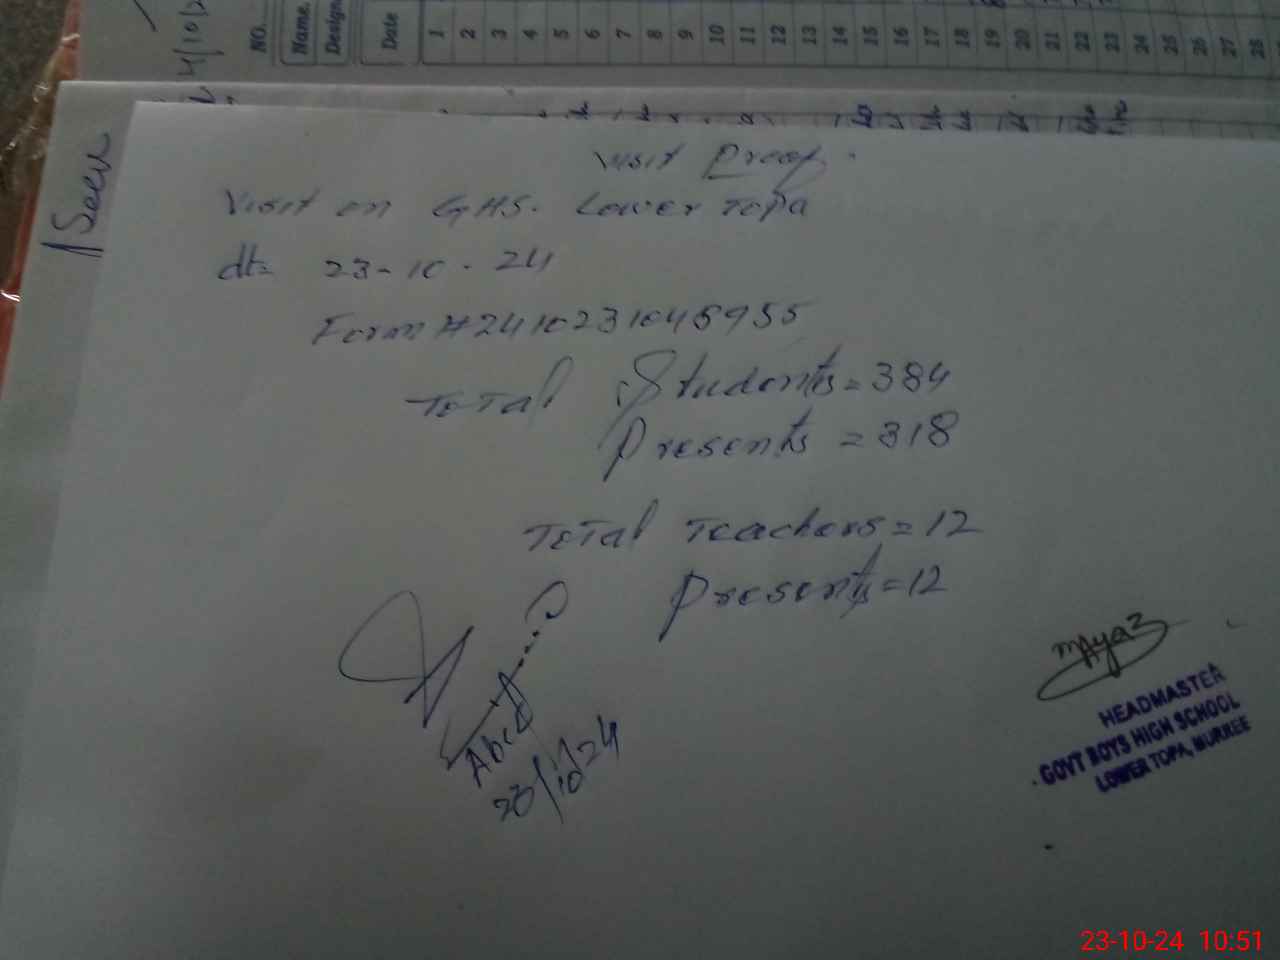 NO.
Name.
Date
1 2 3 4 5 6 7 8 9 10 11 12 13 14 15 16 17 18 19 20 21 22 23 24 25 26 27 28
Seen
Visit Proof.
Visit on GHS. Lower Topa
dt= 23-10-24
Form #2410231045955
Total Students=384
Presents=318
Total Teachers=12
Presents=12
23/10/24
HEADMASTER
GOVT BOYS HIGH SCHOOL
LOWER TOPA, MURREE
23-10-24 10:51